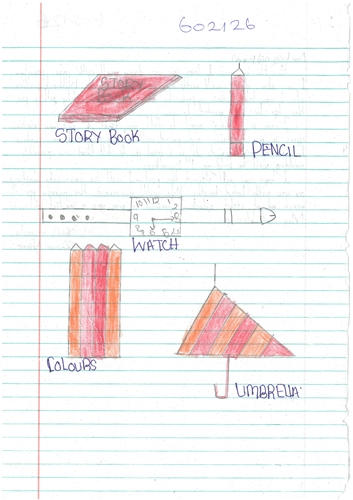 602126
STORY BOOK
STORY BOOK
PENCIL
10 11 12 1 2
9
WATCH
COLOURS
UMBRELLA.